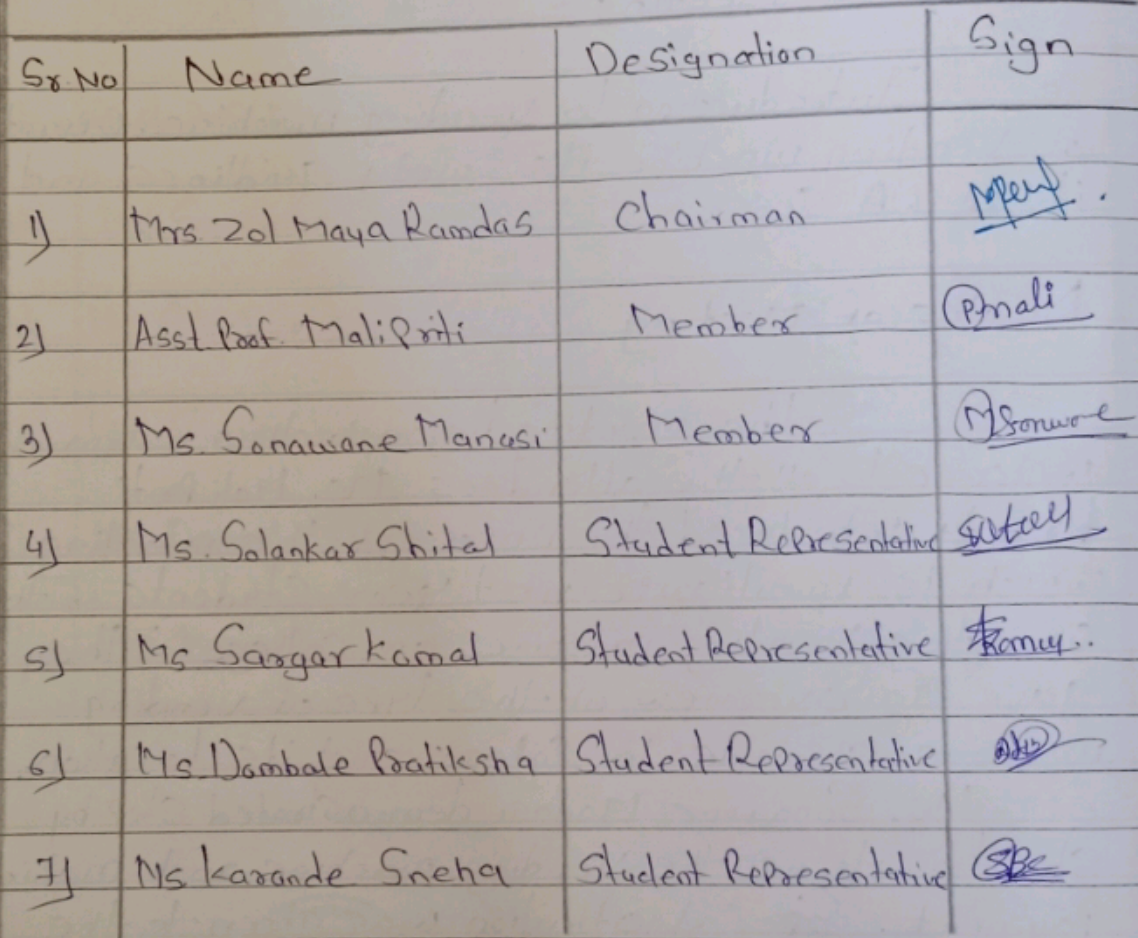 Sr. No Name Designation Sign
1) Mrs. Zol Maya Ramdas Chairman
2) Asst. Prof. Mali Priti Member Pmali
3) Ms. Sonawane Manasi Member
4) Ms. Solankar Shital Student Representative
5) Ms Sargar Komal Student Representative
6) Ms Dombale Pratiksha Student Representative
7) Ms Karande Sneha Student Representative